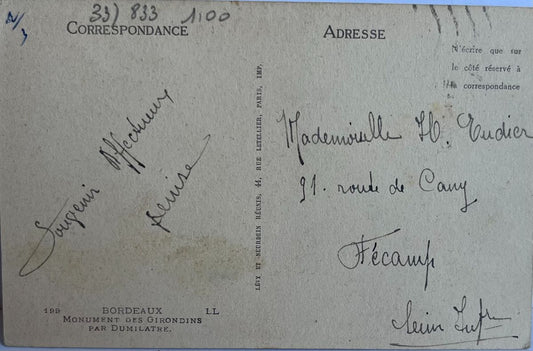 2/3
33) 833 1.00
CORRESPONDANCE
ADRESSE
N'écrire que sur
le côté réservé à
la correspondance
Souvenir Affectueux
Denise
Mademoiselle H. Eudier
91. route de Cany
Fécamp
Seine Infre
LÉVY ET NEURDEIN RÉUNIS, 44, RUE LETELLIER, PARIS, IMP.
199 BORDEAUX LL
MONUMENT DES GIRONDINS
PAR DUMILATRE.